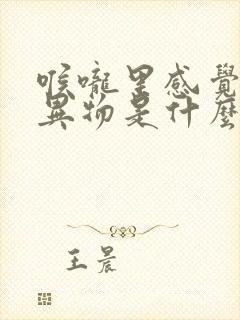 喉嚨里感覺
異物是什麼
王晨